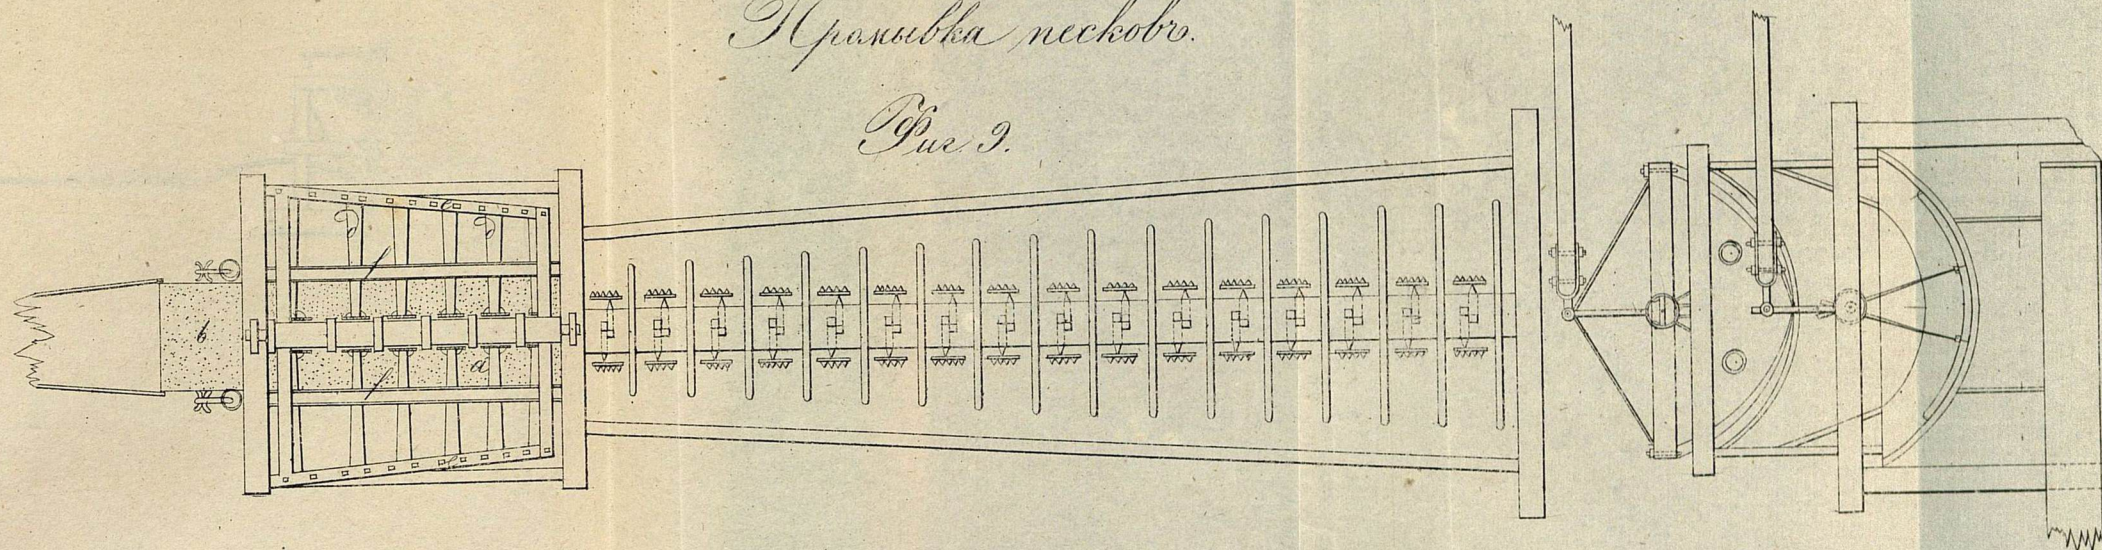 Промывка песковъ.
Фиг. 9.
e
b
a
e